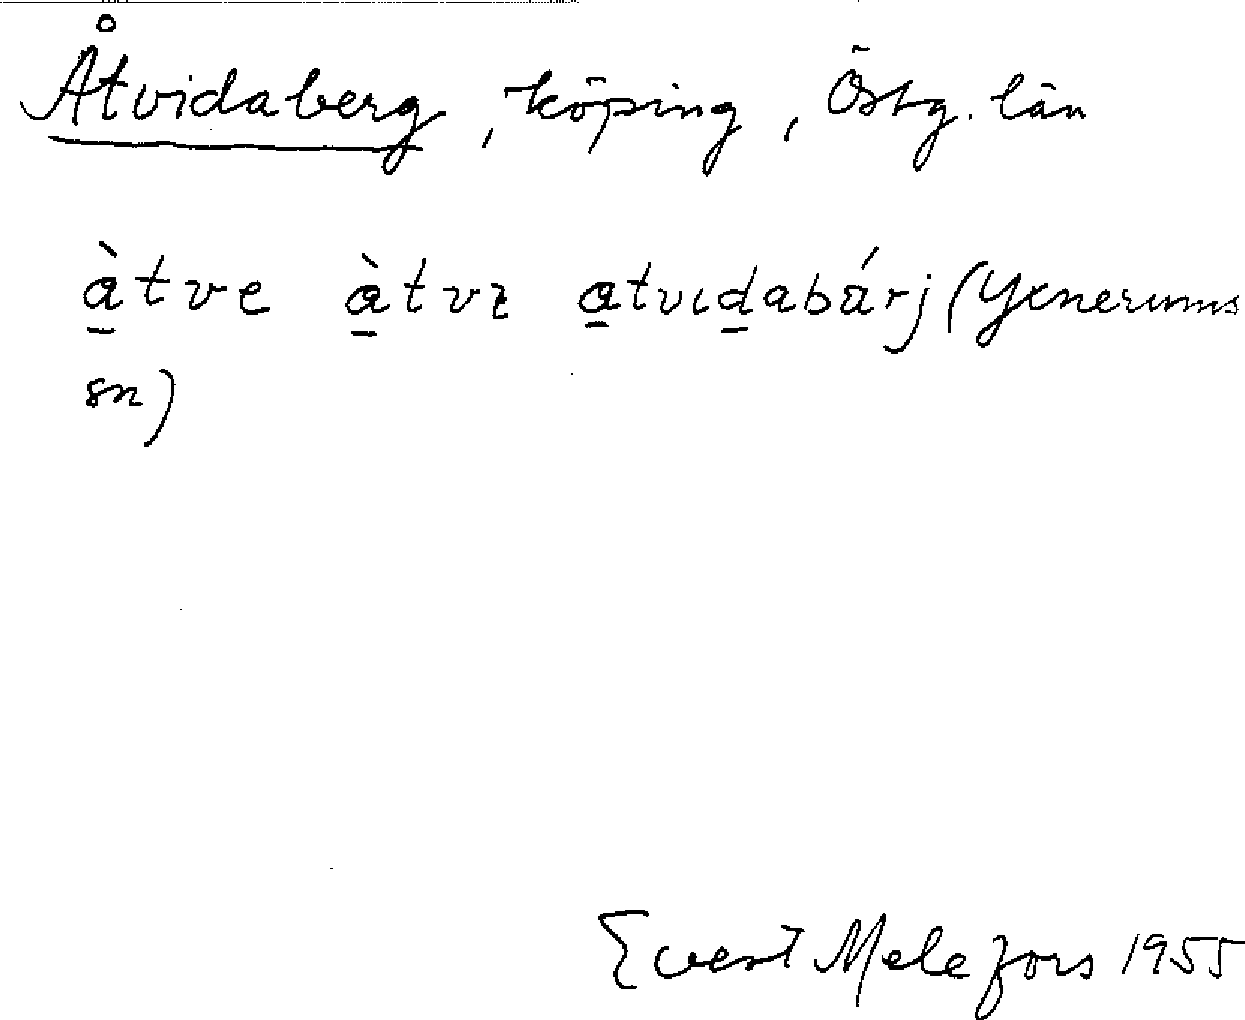 Åtvidaberg, köping, Östg. län
à̱tve à̱tvɛ a̱tvıḏabárj (Yxnerums
sn)
Evert Melefors 1955